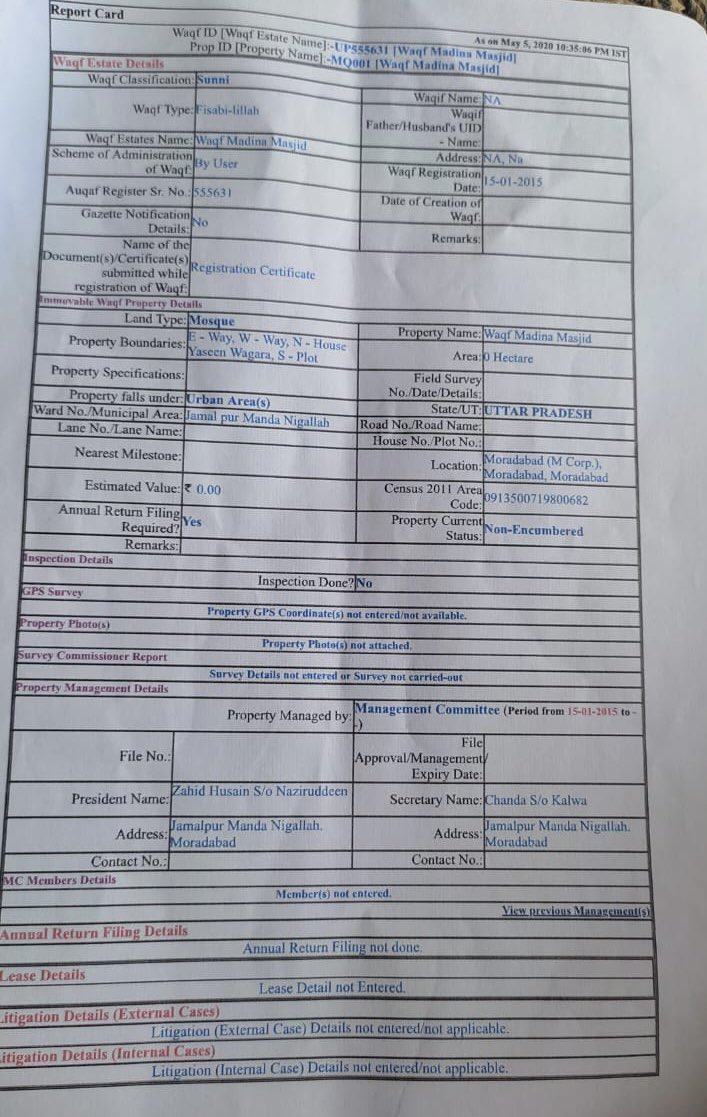 Report Card
As on May 5, 2020 10:35:06 PM IST
Waqf ID [Waqf Estate Name]:-UP555631 [Waqf Madina Masjid]
Prop ID [Property Name]:-MQ001 [Waqf Madina Masjid]
Waqf Estate Details
Waqf Classification: Sunni
Waqf Type: Fisabi-lillah
Waqif Name: NA
Waqif
Father/Husband's UID
- Name:
Waqf Estates Name: Waqf Madina Masjid
Address: NA, Na
Scheme of Administration
of Waqf: By User
Waqf Registration
Date: 15-01-2015
Auqaf Register Sr. No.: 555631
Date of Creation of
Waqf:
Gazette Notification
Details: No
Remarks:
Name of the
Document(s)/Certificate(s)
submitted while
registration of Waqf: Registration Certificate
Immovable Waqf Property Details
Land Type: Mosque
Property Name: Waqf Madina Masjid
Property Boundaries: E - Way, W - Way, N - House
Yaseen Wagara, S - Plot
Area: 0 Hectare
Property Specifications:
Field Survey
No./Date/Details:
Property falls under: Urban Area(s)
State/UT: UTTAR PRADESH
Ward No./Municipal Area: Jamal pur Manda Nigallah
Road No./Road Name:
Lane No./Lane Name:
House No./Plot No.:
Nearest Milestone:
Location: Moradabad (M Corp.),
Moradabad, Moradabad
Estimated Value: ₹ 0.00
Census 2011 Area
Code: 0913500719800682
Annual Return Filing
Required? Yes
Property Current
Status: Non-Encumbered
Remarks:
Inspection Details
Inspection Done? No
GPS Survey
Property GPS Coordinate(s) not entered/not available.
Property Photo(s)
Property Photo(s) not attached.
Survey Commissioner Report
Survey Details not entered or Survey not carried-out
Property Management Details
Property Managed by: Management Committee (Period from 15-01-2015 to -
-)
File No.:
File
Approval/Management/
Expiry Date:
President Name: Zahid Husain S/o Naziruddeen
Secretary Name: Chanda S/o Kalwa
Address: Jamalpur Manda Nigallah.
Moradabad
Address: Jamalpur Manda Nigallah.
Moradabad
Contact No.:
Contact No.:
MC Members Details
Member(s) not entered.
View previous Management(s)
Annual Return Filing Details
Annual Return Filing not done.
Lease Details
Lease Detail not Entered.
Litigation Details (External Cases)
Litigation (External Case) Details not entered/not applicable.
Litigation Details (Internal Cases)
Litigation (Internal Case) Details not entered/not applicable.